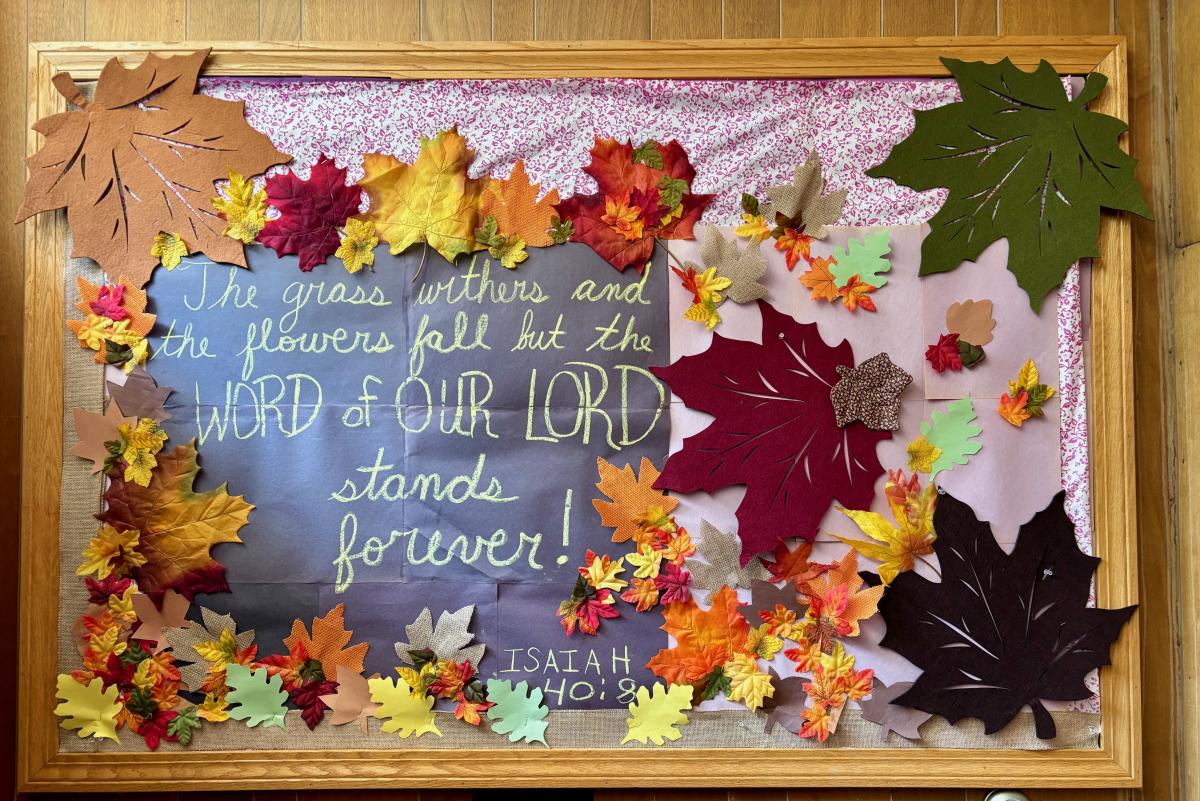 The grass withers and
the flowers fall but the
WORD of OUR LORD
stands
forever!
ISAIAH
40:8